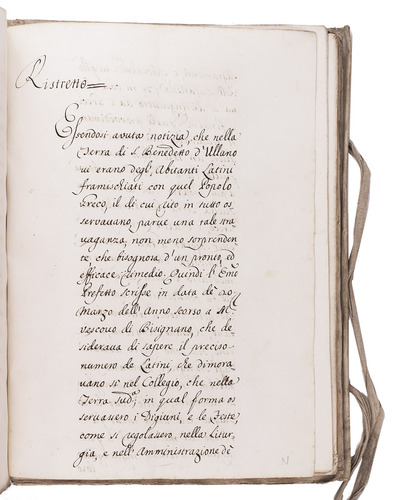 Ristretto =
Essendosi avuta notizia, che nella
Terra di S. Benedetto d'Ullano
vi erano degl'Abitanti Latini
framischiati con quel Popolo
Greco, il di cui Rito in tutto os
servavano, parve una tale stra
vaganza, non meno sorprenden
te, che bisognosa d'un pronto, ed
efficace rimedio. Quindi l'Emo
Prefetto scrisse in data de 20
Marzo dell'Anno scorso a M
Vescovo di Bisignano, che de
siderava di sapere il preciso
numero de Latini, che dimora
vano sì nel Collegio, che nella
Terra sud.a, in qual forma os
servassero i Digiuni, e le Feste,
come si regolassero nella Litur
gia, e nell'Amministrazione de